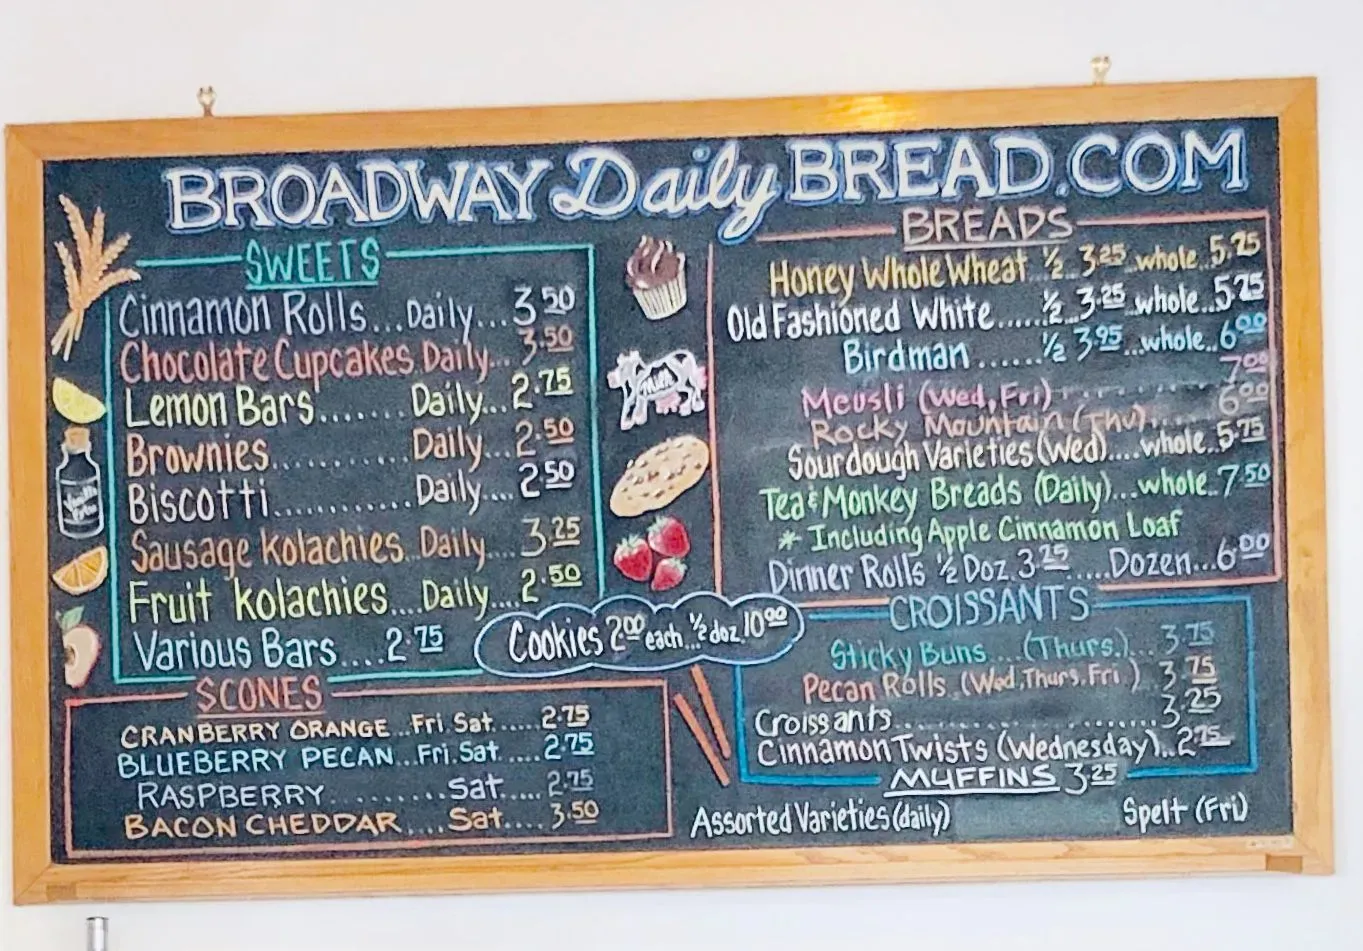 BROADWAY Daily BREAD.COM
SWEETS
Cinnamon Rolls...Daily...3.50
Chocolate Cupcakes Daily...3.50
Lemon Bars.......Daily...2.75
Brownies............Daily...2.50
Biscotti............Daily....2.50
Sausage Kolachies..Daily...3.25
Fruit Kolachies....Daily...2.50
Various Bars....2.75
Cookies 2.00 each...½ doz 10.00
SCONES
CRANBERRY ORANGE...Fri Sat.....2.75
BLUEBERRY PECAN...Fri.Sat.....2.75
RASPBERRY..........Sat.....2.75
BACON CHEDDAR....Sat....3.50
Milk
BREADS
Honey Whole Wheat ½..3.25..whole..5.75
Old Fashioned White......½...3.25..whole..5.75
Birdman.......½ 3.95...whole..6.00
Meusli (Wed, Fri)..........7.00
Rocky Mountain (Thu).......6.00
Sourdough Varieties (Wed)....whole..5.75
Tea & Monkey Breads (Daily)...whole..7.50
* Including Apple Cinnamon Loaf
Dinner Rolls ½ Doz. 3.25.....Dozen...6.00
CROISSANTS
Sticky Buns....(Thurs.)...3.75
Pecan Rolls.(Wed, Thurs, Fri.) 3.75
Croissants........................3.25
Cinnamon Twists (Wednesday)..2.75
MUFFINS 3.25
Assorted Varieties (daily) Spelt (Fri)